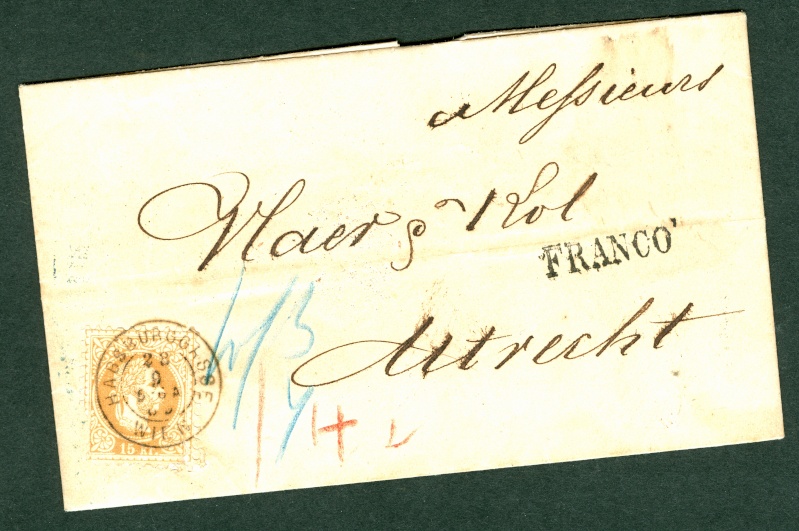 a Messieurs
Vlaer & Kol
FRANCO
Utrecht
HABSBURGGASSE
WIEN
15 Kr.